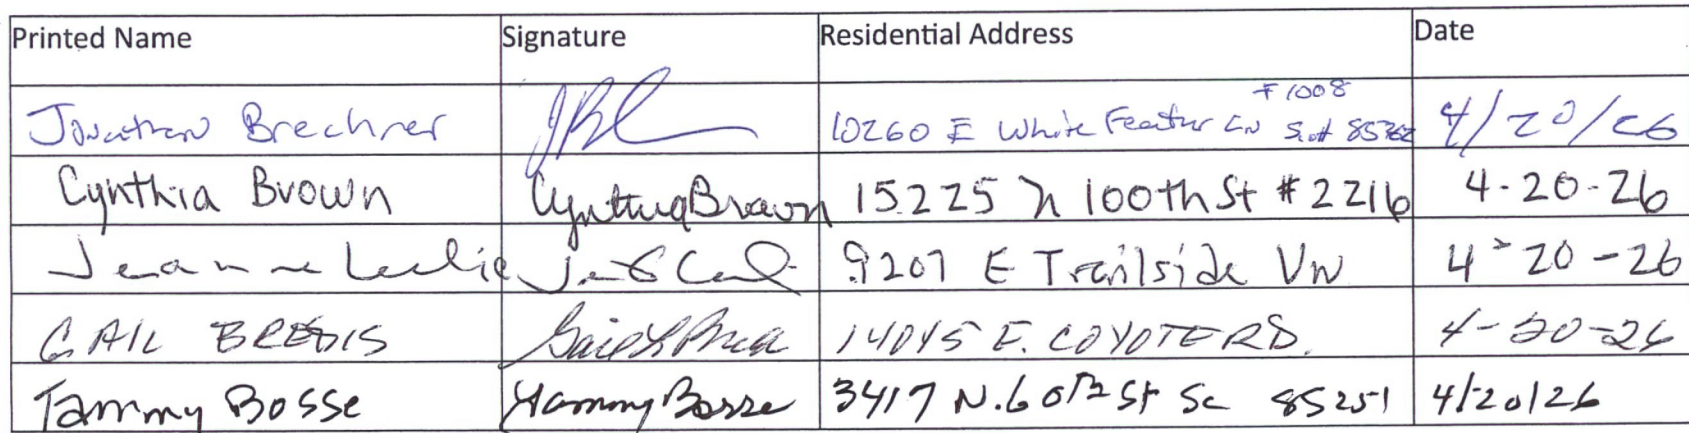 Printed Name Signature Residential Address Date
Jonathan Brechner 10260 E White Feather Ln #1008 Scot 85262 4/20/26
Cynthia Brown Cynthia Brown 15225 N 100th St #2216 4-20-26
Jeanne Leslie 9207 E Trailside Vw 4-20-26
GAIL 14045 E. COYOTE RD. 4-20-26
Tammy Bosse Tammy Bosse 3417 N. 60th St Sc 85251 4/20/26